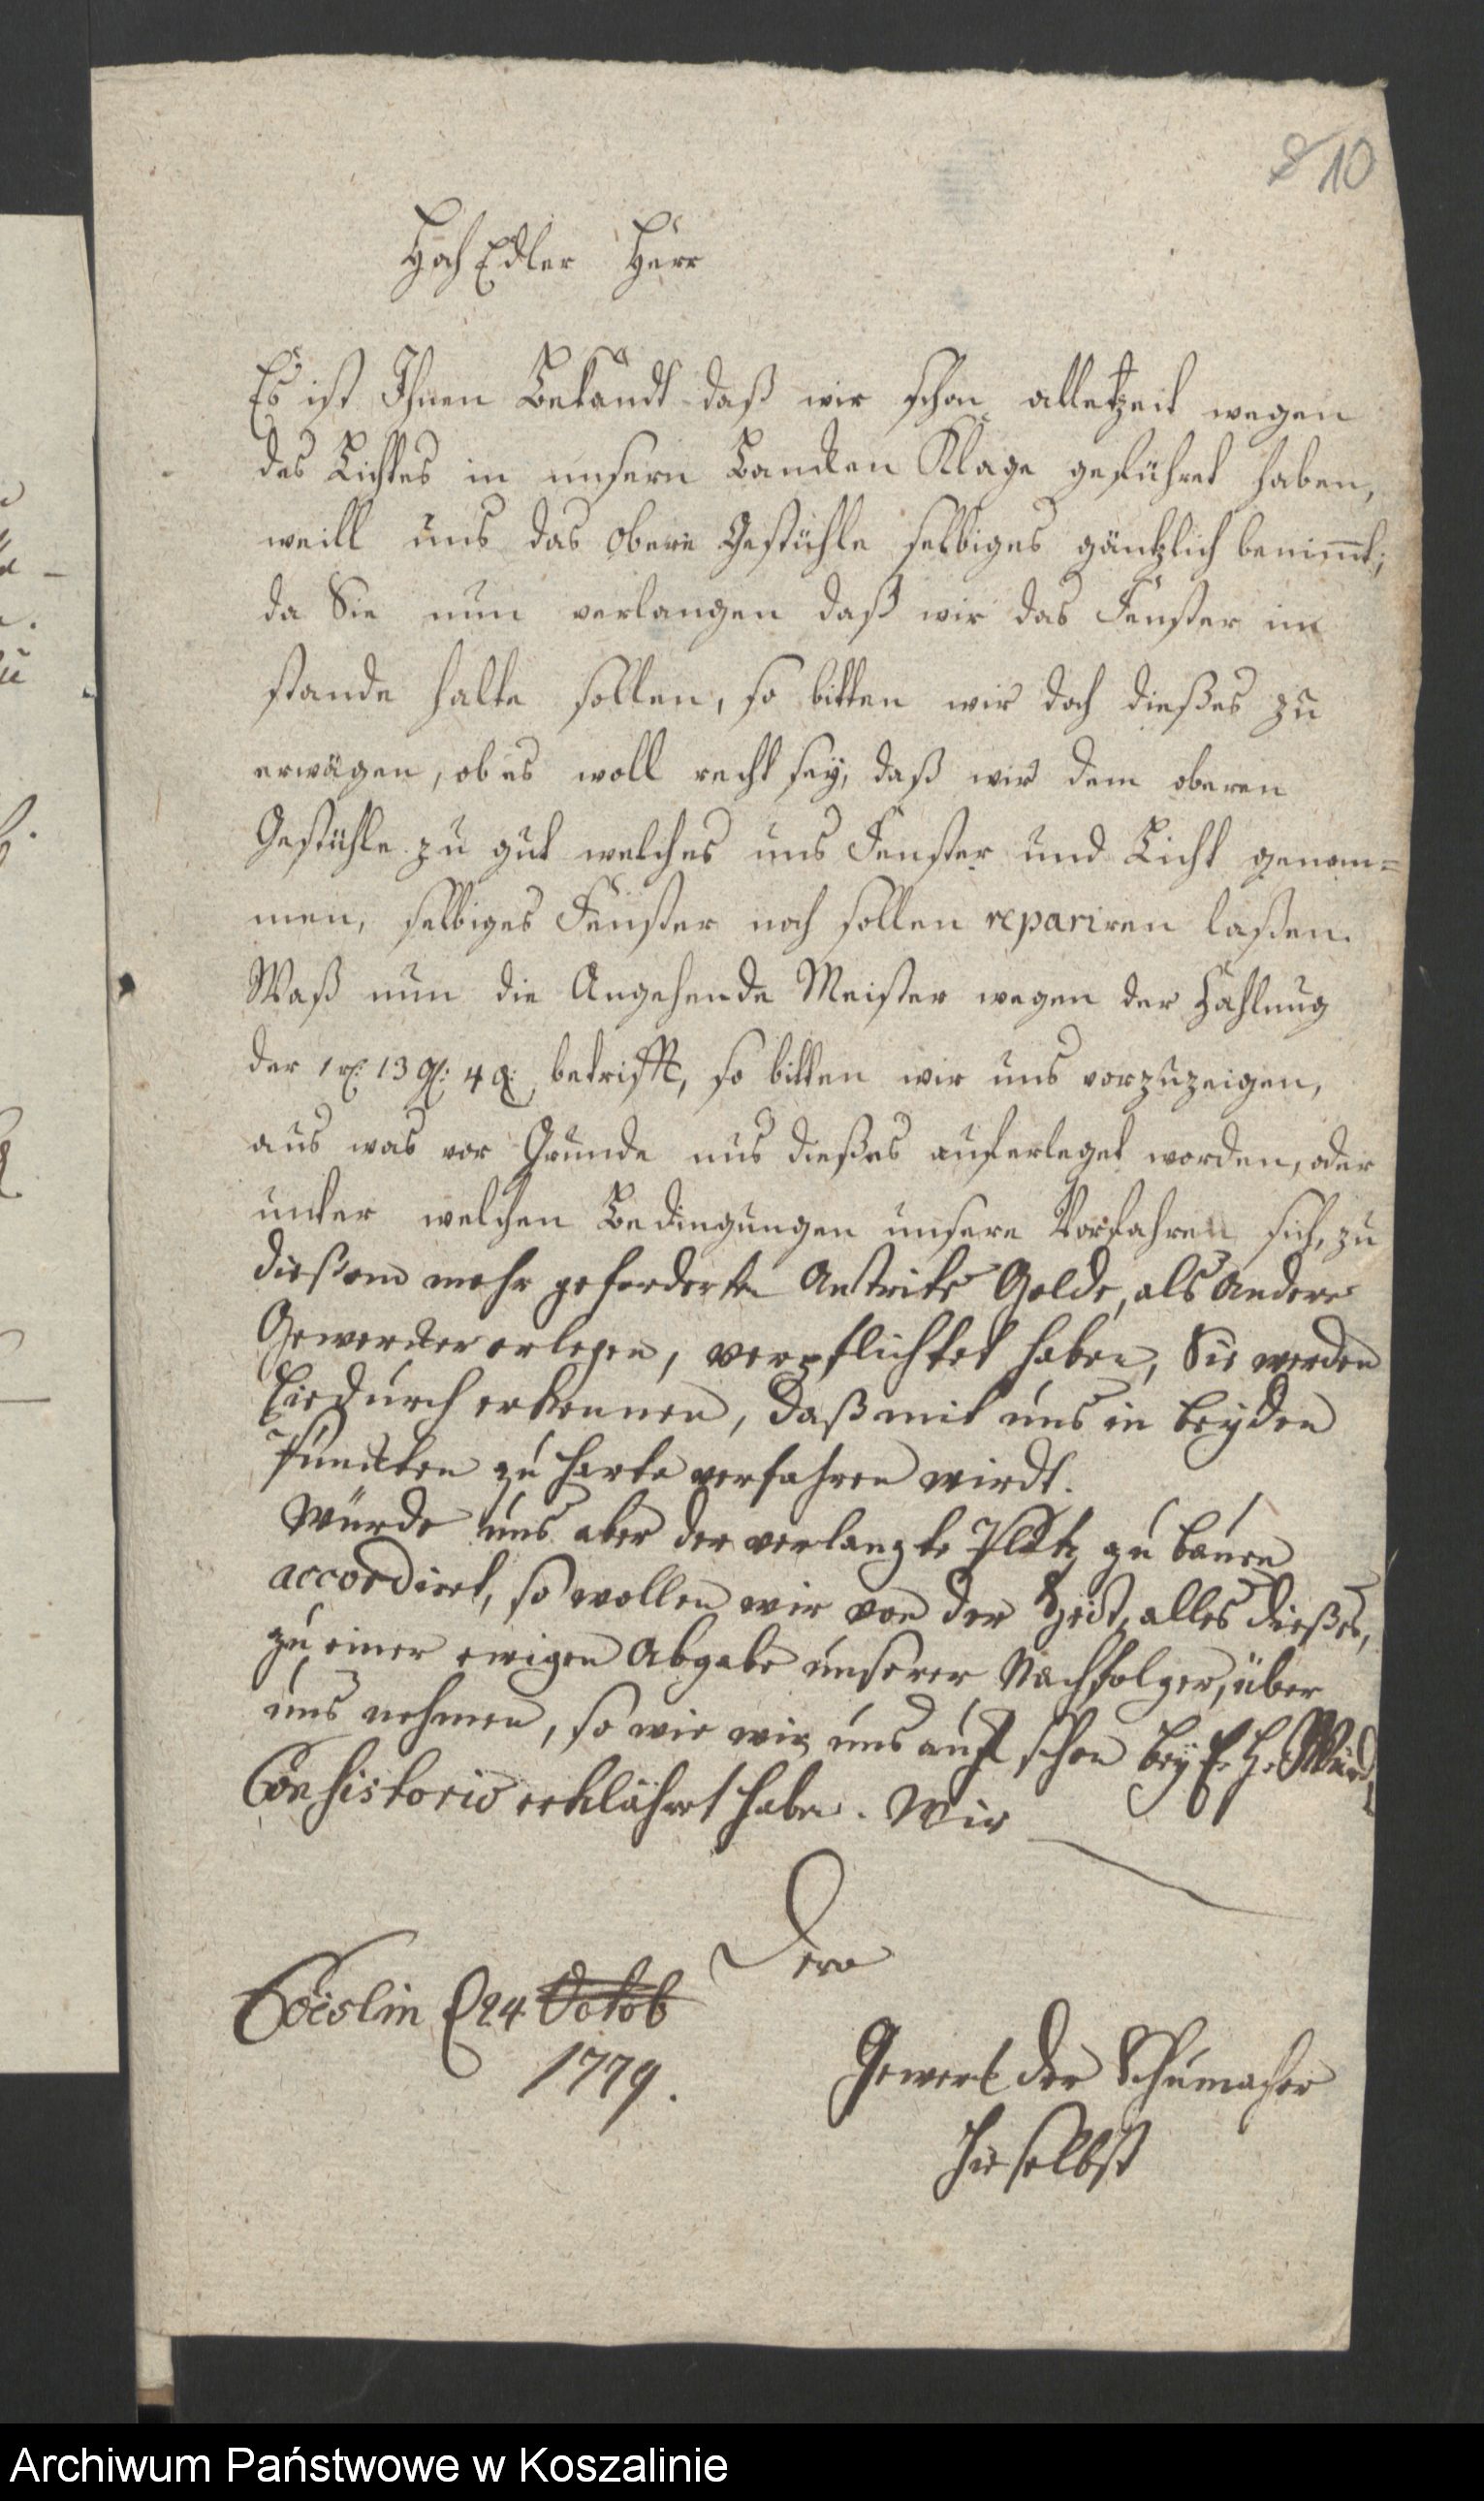 8 10
Hoch Edler Herr
Es ist Ihnen Bekandt daß wir schon alletzeit wegen
des Lichtes in unsern Bancken Klage geführet haben,
weill uns das obere Gestühle selbiges gäntzlich benim̅t;
da Sie nun verlangen daß wir das Fenster im
stande halte sollen, so bitten wir doch dießes zu
erwägen, ob es woll recht sey, daß wir dem oberen
Gestühle zu gut welches uns Fenster und Licht genom=
men, selbiges Fenster noch sollen repariren laßen.
Waß nun die Angehende Meister wegen der Zahlung
der 1 rt: 13 gl: 4 d: betrifft, so bitten wir uns vorzuzeigen,
aus was vor Grunde uns dießes auferleget worden, oder
unter welchen Bedingungen unsere Vorfahren sich, zu
dießem mehr geforderten Antrits Gelde, als andere
Gewercker erlegen, verpflichtet haben, Sie werden
hiedurch erkennen, daß mit uns in beyden
Puncten zu harte verfahren wirdt.
Würde uns aber der verlangte Platz zu bauen
accordiret, so wollen wir von der Zeit, alles dießes,
zu einer ewigen Abgabe unserer Nachfolger, über
uns nehmen, so wie wir uns auch schon bey E. H.
Consistorio erklähret haben. Wir
Dero
Cöeslin d 24 Octob
1779.
Gewerk der Schumacher
hieselbst
Archiwum Państwowe w Koszalinie